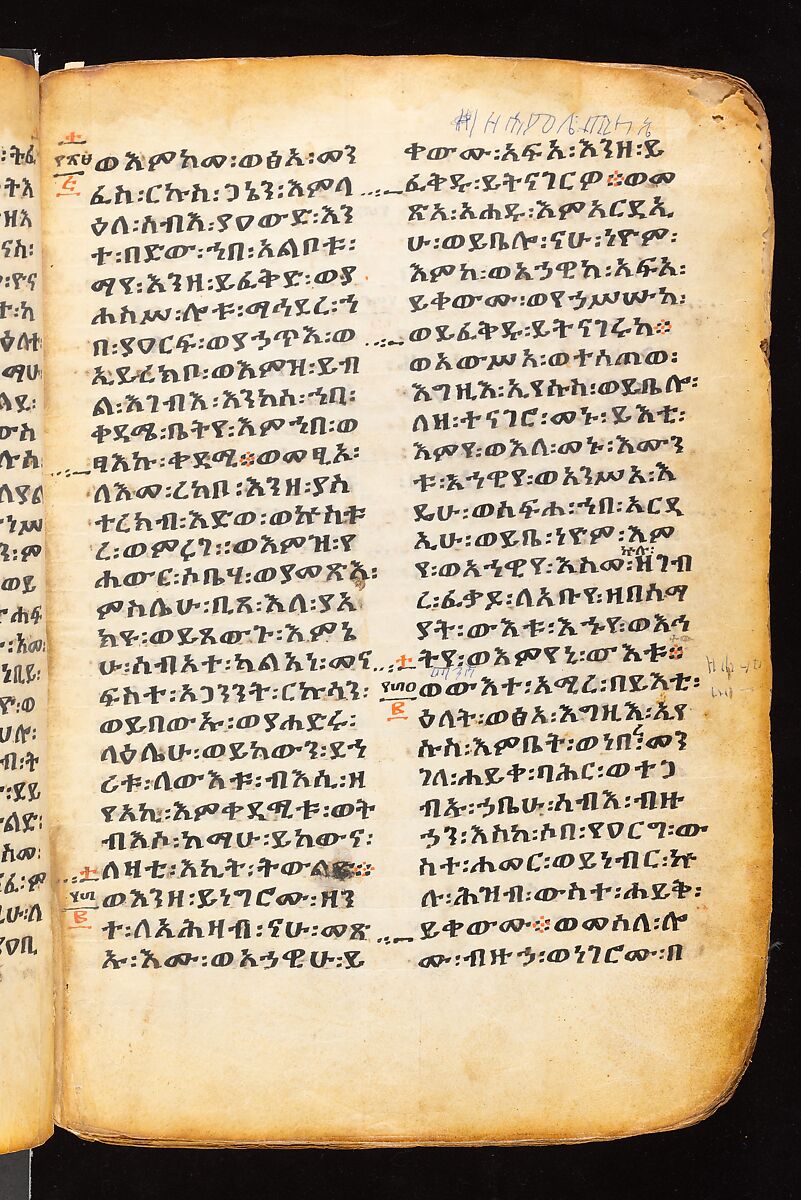 ወእምከመ፡ወፅአ፡መን
ፈስ፡ርኩስ፡ጋኔን፡እምላ
ዕለ፡ሰብእ፡ያዐውድ፡እን
ተ፡በድው፡ኀበ፡አልቦቱ፡
ማየ፡እንዘ፡ይፈቅድ፡ወያ
ሐስሥ፡ሎቱ፡ማኅደረ፡ኀ
በ፡ያዐርፍ፡ወያኃጥእ፡ወ
ኢይረክቦ፡ወእምዝ፡ይብ
ል፡እገብእ፡እንከሰ፡ኀበ፡
ቀዳሚ፡ቤትየ፡እምኀበ፡ወ
ፃእኩ፡ቀዳሚ።ወመጺአ፡
ለእመ፡ረከቦ፡እንዘ፡ያስ
ተረክብ፡እድወ፡ወኵስቱ
ረ፡ወምሩገ፡፡ወእምዝ፡የ
ሐውር፡ሶቤሃ፡ወያመጽእ፡
ምስሌሁ፡ቢጸ፡እለ፡ያአ
ክዩ፡ወይጸውጉ፡እምኔ
ሁ፡ሰብአተ፡ካልአነ፡መና
ፍስተ፡አጋንንት፡ርኩሳን፡
ወይበውኡ፡ወያሐድሩ፡
ላዕሌሁ፡ወይከውን፡ደኀ
ሪቱ፡ለውእቱ፡ብእሲ፡ዘ
የአኪ፡እምቀዳሚቱ፡ወት
ብእሶ፡ከማሁ፡ይከውና፡
ለዛቲ፡እኪት፡ትውልድ።
ወእንዘ፡ይነግሮሙ፡ዘን
ተ፡ለአሕዛብ፡ናሁ፡መጽ
ኡ፡እሙ፡ወአኃዊሁ፡ይ
ቀውሙ፡አፍአ፡እንዘ፡ይ
ፈቅዱ፡ይትናገርዎ።ወመ
ጽአ፡አሐዱ፡እምአርዳኢ
ሁ፡ወይቤሎ፡ናሁ፡ነዮም፡
እምከ፡ወአኃዊከ፡አፍአ፡
ይቀውሙ፡ወየኃሥሡከ፡
ወይፈቅዱ፡ይትናገሩከ።
ወአውሥአ፡ወተሰጠወ፡
እግዚእ፡ኢየሱስ፡ወይቤሎ፡
ለዘ፡ተናገሮ፡መኑ፡ይእቲ፡
እምየ፡ወእለ፡መኑ፡እሙን
ቱ፡አኀዊየ፡ወአንሥአ፡እ
ዴሁ፡ወሰፍሐ፡ኀበ፡አርዳ
ኢሁ፡ወይቤ፡ነዮም፡እም
የ፡ወአኀዊየ፡እስመ፡ኵሉ፡ዘገብ
ረ፡ፈቃዶ፡ለአቡየ፡ዘበሰማ
ያት፡ውእቱ፡እኁየ፡ወእኅ
ትየ፡ወእምየኒ፡ውእቱ።
ወውእተ፡አሚረ፡በይእቲ፡
ዕለት፡ወፅአ፡እግዚእ፡ኢየ
ሱስ፡እምቤት፡ወነበረ፡መን
ገለ፡ሐይቀ፡ባሕር፡ወተጋ
ብኡ፡ኃቤሁ፡ሰብእ፡ብዙ
ኃን፡እስከ፡ሶበ፡የዐርግ፡ው
ስተ፡ሐመር፡ወይነብር፡ኵ
ሉ፡ሕዝብ፡ውስተ፡ሐይቅ፡
ይቀውሙ።ወመሰለ፡ሎ
ሙ፡ብዙኃ፡ወነገሮሙ፡በ